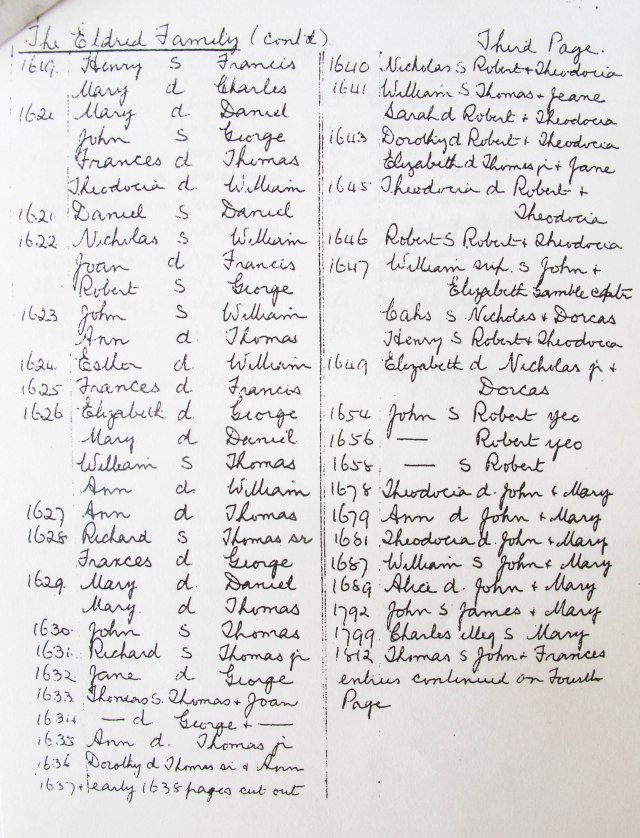 The Eldred Family (contd)
Third Page.
1619. Henry S Francis
Mary d Charles
1620 Mary d Daniel
John S George
Frances d Thomas
Theodocia d. William
1621. Daniel S Daniel
1622 Nicholas S William
Joan d Francis
Robert S George
1623 John S William
Ann d. Thomas
1624. Esther d. William
1625 Frances d Francis
1626 Elizabeth d. George
Mary d Daniel
William S Thomas
Ann d. William
1627 Ann d. Thomas
1628 Richard S Thomas sr
Frances d George
1629. Mary d. Daniel
Mary d Thomas
1630. John S Thomas
1631. Richard S Thomas jr
1632 Jane d George
1633 Thomas S. Thomas + Joan
1634 — d George + —
1635 Ann d. Thomas jr
1636 Dorothy d Thomas sr + Ann
1637 + early 1638 pages cut out
1640 Nicholas S Robert + Theodocia
1641 William S Thomas + Jeane
Sarah d Robert + Theodocia
1643 Dorothy d Robert + Theodocia
Elizabeth d Thomas jr + Jane
1645 Theodocia d Robert +
Theodocia
1646 Robert S Robert + Theodocia
1647 William sup. S John +
Elizabeth Gamble
S Nicholas + Dorcas
Henry S Robert + Theodocia
1649 Elizabeth d Nicholas jr +
Dorcas
1654 John S Robert yeo
1656 — Robert yeo
1658 — S Robert
1678 Theodocia d. John + Mary
1679 Ann d John + Mary
1681 Theodocia d. John + Mary
1687 William S John + Mary
1689 Alice d. John + Mary
1792 John S James + Mary
1799 Charles illeg S Mary
1812 Thomas S John + Frances
entries continued on Fourth
Page